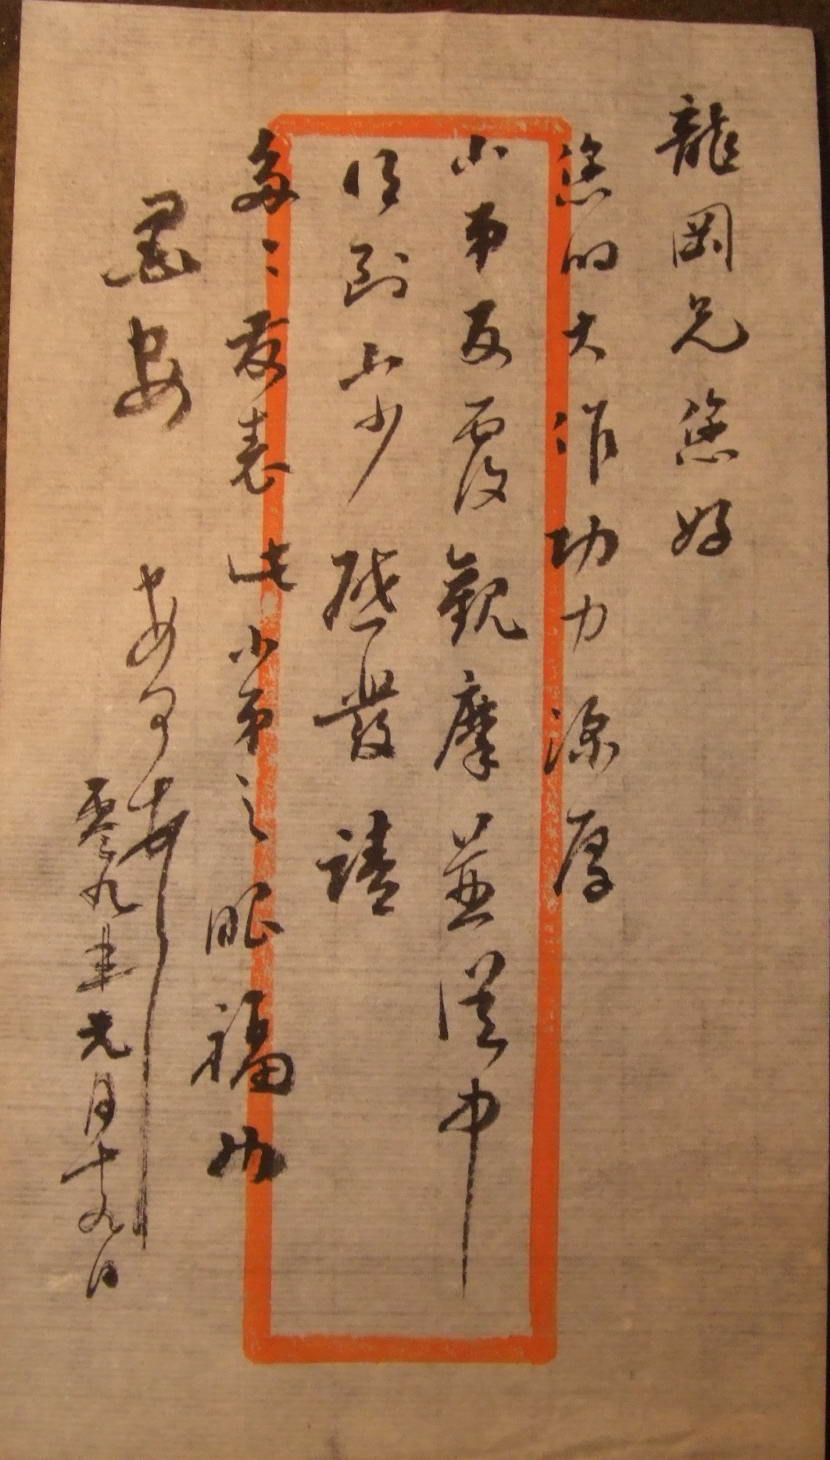 龍岡兄您好
您的大作功力深厚
小弟反覆觀摩並從中
得到不少啓發請
多多發表此小弟之眼福也
墨安
零九年元月十九日